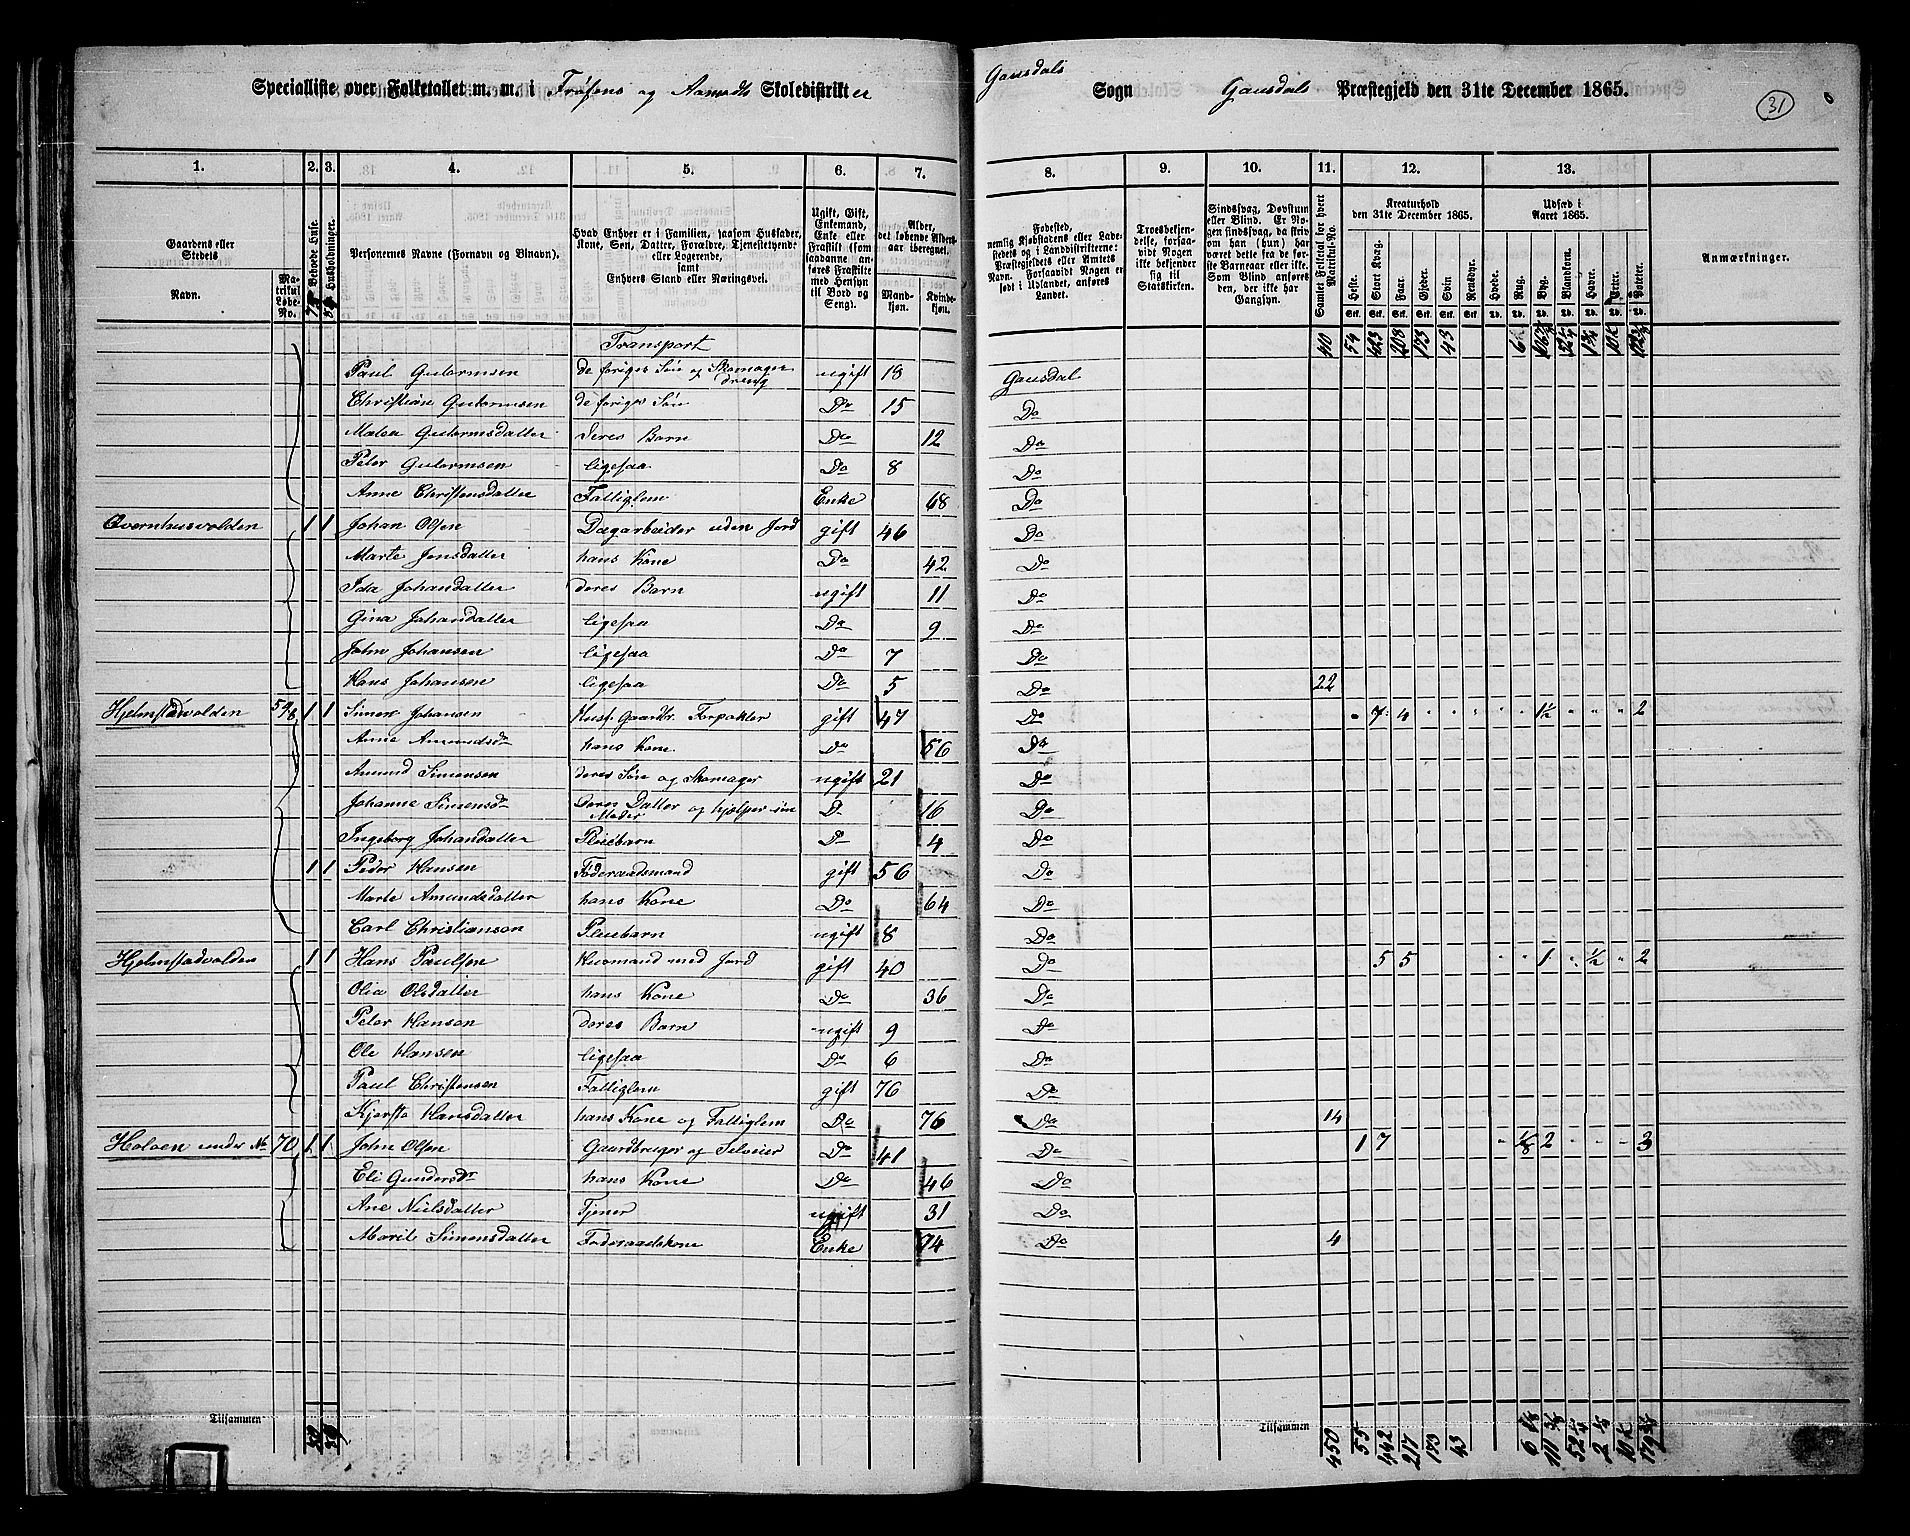 Specialliste over Folketallet m. m. i Frøsens og Aamodts Skoledistrikter
Gausdals Sogn Gausdals Præstegjeld den 31te December 1865.
31
1. 2. 3. 4. 5. 6. 7. 8. 9. 10. 11. 12. 13.
Gaardens eller Stedets Navn.
Matrikul Løbe-No.
Beboede Huse.
Husholdninger.
Personernes Navne (Fornavn og Binavn).
Hvad Enhver er i Familien, saasom Husfader, Kone, Søn, Datter, Forældre, Tjenestetyende eller Logerende, samt Enhvers Stand eller Næringsvei.
Ugift, Gift, Enkemand, Enke eller Fraskilt (som saadanne anføres Fraskilte med Hensyn til Bord og Seng).
Alder, det løbende Aldersaar iberegnet.
Mandkjøn. Kvindekjøn.
Fødested, nemlig Kjøbstadens eller Ladestedets og i Landdistrikterne: Præstegjeldets eller Amtets Navn. Forsaavidt Nogen er født i Udlandet, anføres Landet.
Troesbekjendelse, forsaavidt Nogen ikke bekjender sig til Statskirken.
Sindssvag, Døvstum eller Blind. Er Nogen sindssvag, da skriv om han (hun) har været dette fra de første Barneaar eller ikke. Som Blind anføres den, der ikke har Gangsyn.
Samlet Folketal for hvert Matrikul-No.
Kreaturhold den 31te December 1865.
Heste. Stort Kvæg. Faar. Gjeder. Svin. Rensdyr.
Udsæd i Aaret 1865.
Hvede. Rug. Byg. Blandkorn. Havre. Erter. Poteter.
Anmærkninger.
Transport 54 423 208 173 43
Paul Gutormsen de foriges Søn og Skomagerdreng ugift 18 Gausdal
Christian Gutormsen de foriges Søn Do 15 Do
Malen Gutormsdatter deres Barn Do 12 Do
Peter Gutormsen ligesaa Do 8 Do
Anne Christensdatter Fattiglem Enke 68 Do
Øvernhusvolden 1 1 Johan Olsen Dagarbeider uden Jord gift 46 Do
Marte Jensdatter hans Kone Do 42 Do
Ida Johansdatter deres Barn ugift 11 Do
Gina Johandatter ligesaa Do 9 Do
John Johansen ligesaa Do 7 Do
Hans Johansen ligesaa Do 5 Do 22
Hjelmstadvolden 1 1 Simen Johansen Husf. Gaardbr. Forpakter gift 47 Do " 7 4 " " " " " 1½ " " " 2
Anne Amundsdr hans Kone Do 56 Do
Amund Simensen deres Søn og Skomager ugift 21 Do
Johanne Simensdr deres Datter og hjælper sin Moder D 16 Do
Ingeborg Johandatter Pleiebarn D 4 Do
1 1 Peder Hansen Føderaadsmand gift 56 Do
Marte Amundsdatter hans Kone Do 64 Do
Carl Christiansen Pleiebarn ugift 8 Do
Hjelmstadvolden 1 1 Hans Paulsen Husmand med Jord gift 40 Do 5 5 " " 1 " ½ " 2
Olia Olsdatter hans Kone Do 36 Do
Peter Hansen deres Barn ugift 9 Do
Ole Hansen ligesaa Do 6 Do
Paul Christensen Fattiglem gift 76 Do
Kjersti Hansdatter hans Kone og Fattiglem Do 76 Do 14
Holoen under No 70 1 1 John Olsen Gaardbruger og Selveier Do 41 Do 1 7 " ⅛ 2 " " " 3
Eli Gundersdr hans Kone Do 46 Do
Ane Nielsdatter Tjener ugift 31 Do
Marit Simensdatter Føderaadskone Enke 74 Do 4
Tilsammen
Tilsammen 450 55 442 217 173 43